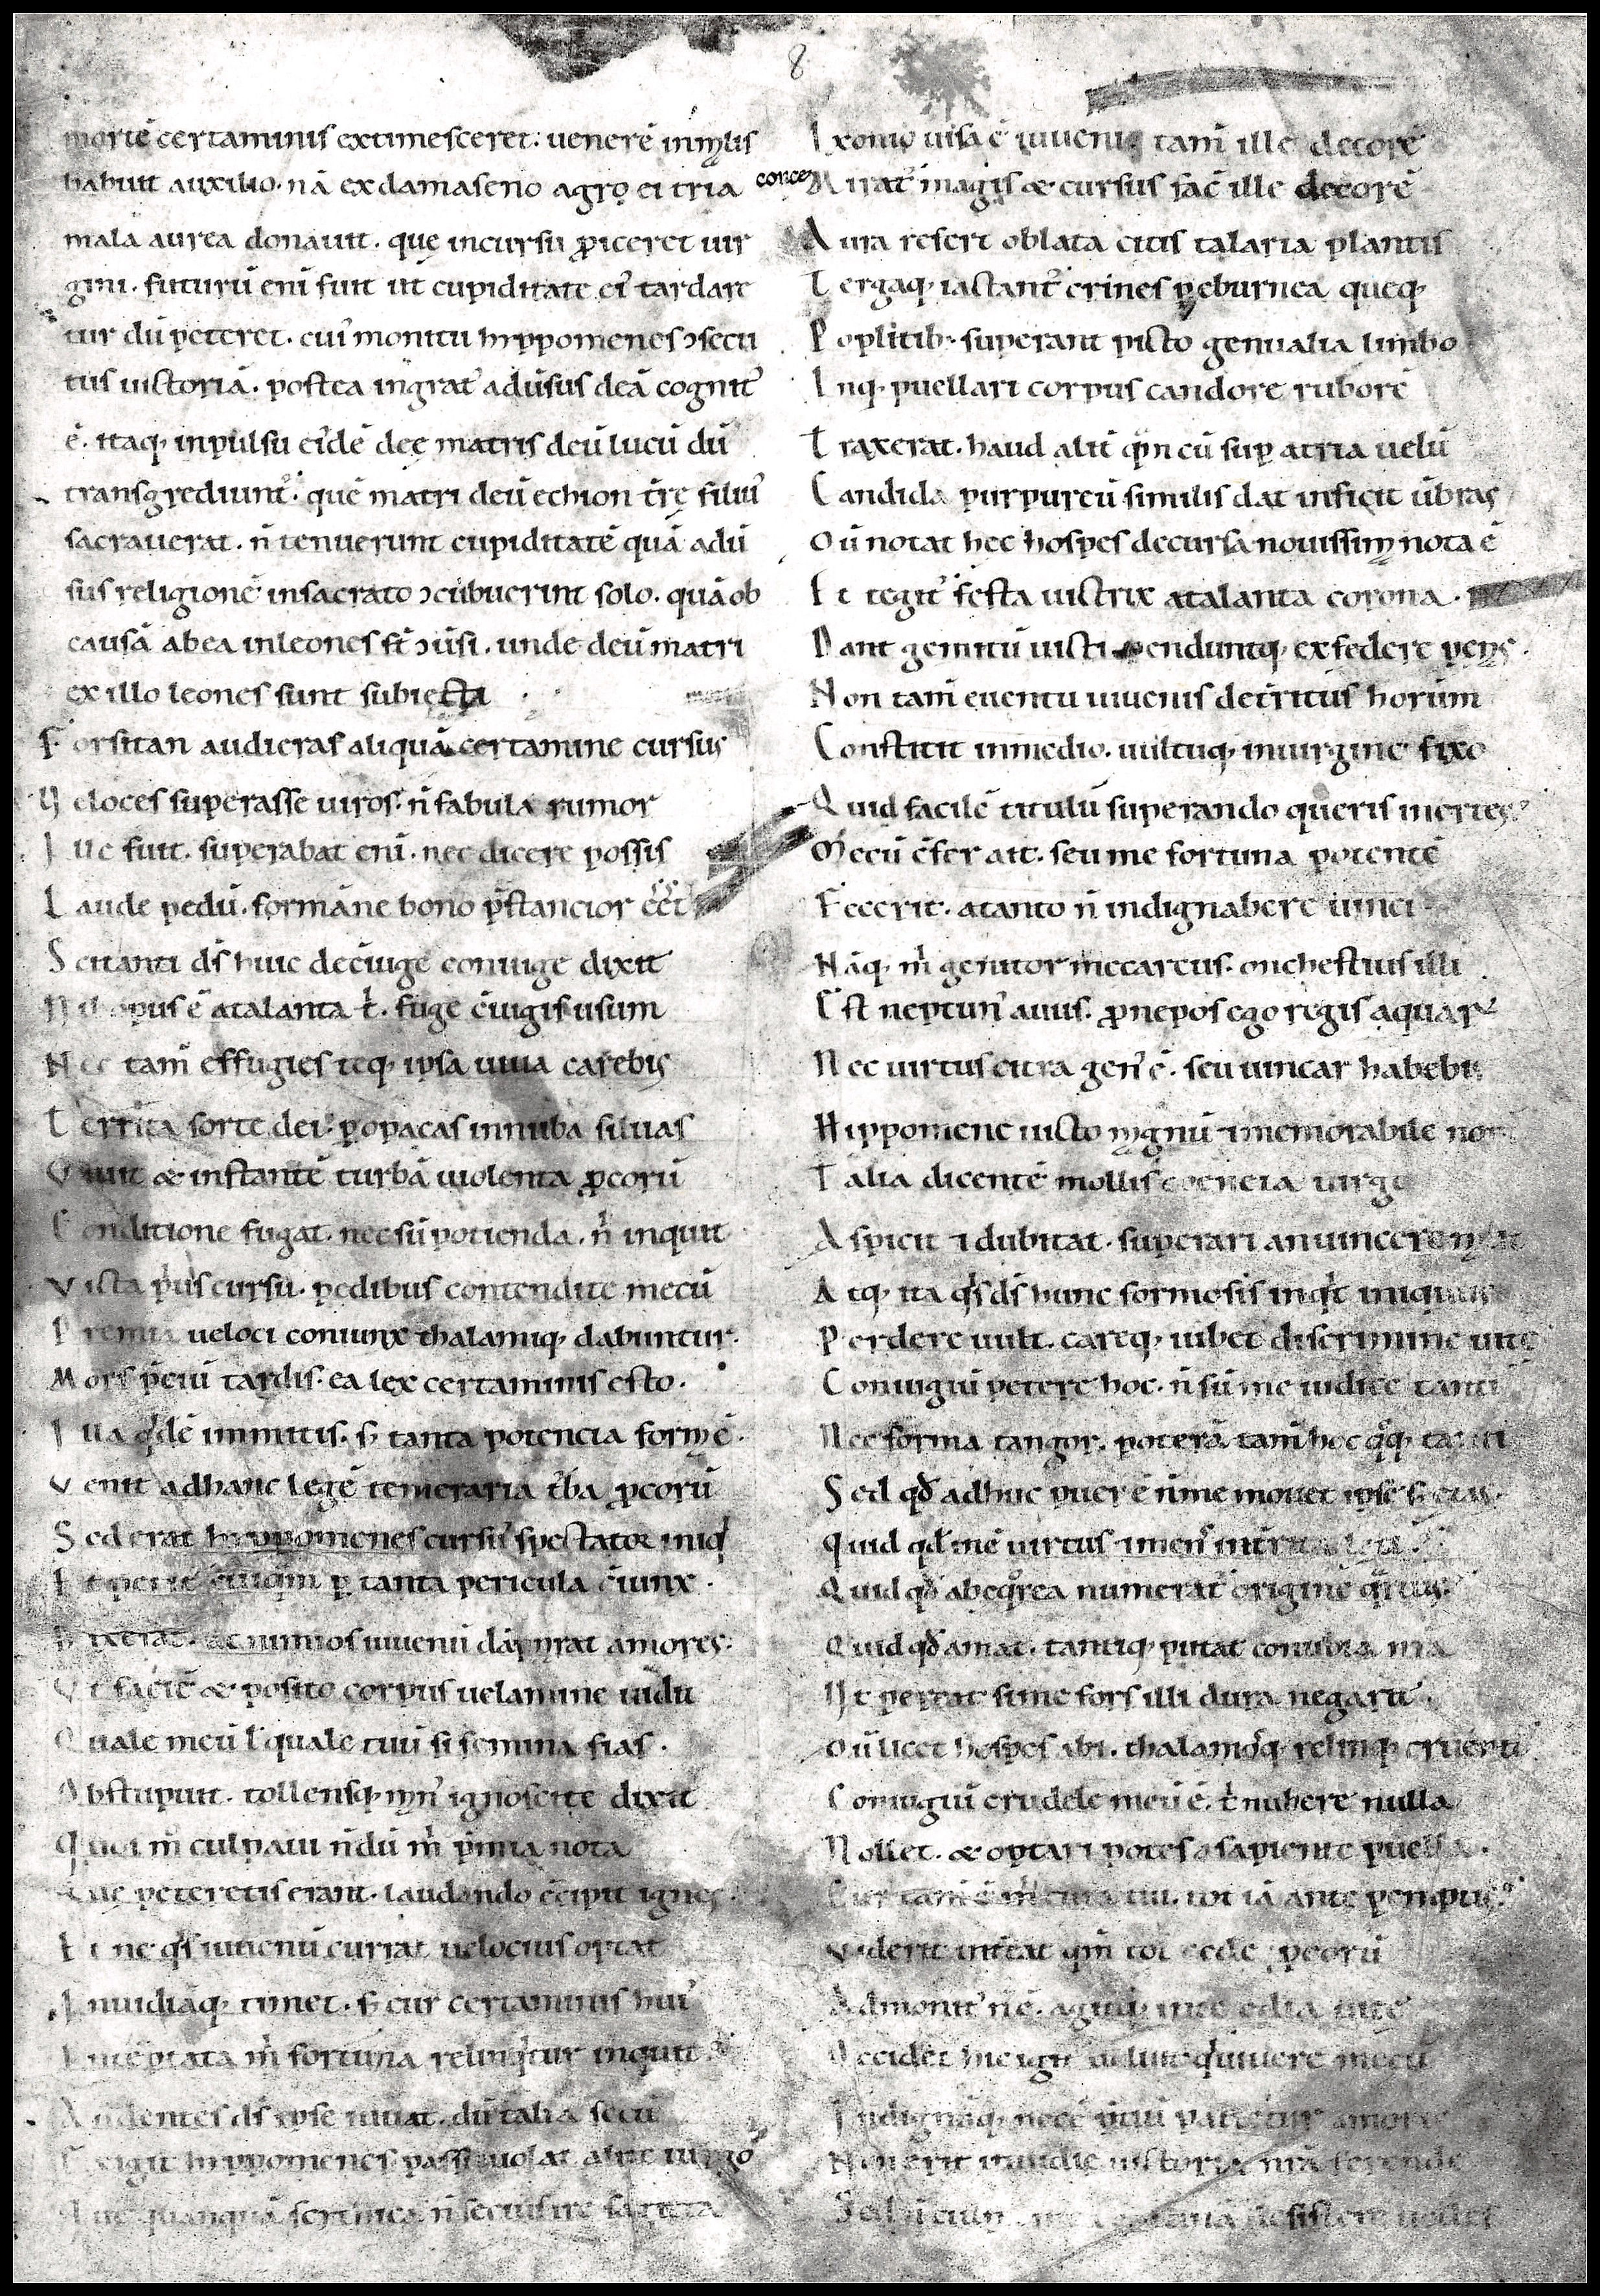 8
morte certaminis extimesceret. venerē inmylis
habuit auxilio. nā exdamaseno agro ei tria
conce
mala aurea donauit. quę incursu ꝓiceret uir
gini. futurū enī fuit ut cupiditate eiꝰ tardare
tur dū peteret. cuiꝰ monitu hyppomenes ɔsecu
tus uictoriā. postea ingratꝰ aduersus deā cognitꝰ
ē. itaq; inpulsu eidē deę matris deū lucū dū
transgrediunt᷒. quē matri deū echion tr̄ę filiꝰ
sacrauerat. n̄ tenuerunt cupiditatē quā adū
sus religionē insacrato ɔcubuerint solo. quāob
causā abea inleones st̄ ɔūsi. unde deū matri
ex illo leones sunt subiecti
Forsitan audieras aliquā certamine cursus
Veloces superasse uiros. n̄ fabula rumor
Ille fuit. superabat enī. nec dicere possis
Laude pedū. formāne bono p̄stancior eēt
Scitanti ds̄ huic deciuge coniuge dixit
Nil opus ē atalanta t. fuge cīugis usum
Nec tam̄ effugies teq; ipsa uiua carebis
Territa sorte dei. ꝑopacas innuba siluas
Viuit & instantē turbā uiolenta ꝓcorū
Conditione fugat. nec sū potienda. n̄ inquit
Victa pͥus cursu. pedibus contendite mecū
Premia ueloci coniunx thalamiq; dabuntur.
Mors p̄ciū tardis. ea lex certaminis esto.
Illa qͥdē immitis. s; tanta potencia formę ē.
Venit adhanc legē temeraria t̄ba ꝓcorū
Sederat hyppomenes cursꝰ spectator iniqͥ
Et petit cuiqm̄ ꝑ tanta pericula cīunx.
Dixerat. ac nimios iuuenū dāpnarat amores.
Vt faciē & posito corpus uelamine uidit
Quale meū l quale tuū si femina fias.
Obstupuit. tollensq; manꝰ ignoscite dixit
Quos m̄ culpaui n̄dū m̄ p̄mia nota
Que peteretis erant. laudando c̄cipit ignes.
Et ne qͥs iuuenū currat uelocius optat
Inuidiāq; timet. s; cur certaminis huiꝰ
Intēptata m̄ fortuna relinqͥtur inquit
Audentes ds̄ ipse iuuat. dū talia secū
Exigit hyppomenes passu uolat alite uirgo
Que quanquā scithica n̄ secius ire sagitta
Ixonio uisa ē iuueni tam̄ ille decorē
Miratꝰ magis & cursus fac̄ ille decorē
Aura refert oblata citis talaria plantis
Tergaq; iactant᷒ crines ꝑ eburnea queq;
Poplitib; superant picto genualia limbo
Inq; puellari corpus candore ruborē
Traxerat. haud alit̄ qm̄ cū suꝑ atria uelū
Candida purpureū similis dat inficit ūbras
Dū notat hec hospes decursa nouissima nota ē
Et tegit᷒ festa uictrix atalanta corona.
Dant gemitū uicti penduntq; exfedere penas.
Non tam̄ euentu iuuenis det̄ritus horum
Constitit inmedio. uultuq; inuirgine fixo
Quid facilē titulū superando queris inertes
Mecū c̄fer ait. seu me fortuna potentē
Fecerit. atanto n̄ indignabere uinci
Nāq; m̄ genitor mecareus. onchestius illi
Est neptunꝰ auus. ꝓnepos ego regis aquarꝝ
Nec uirtus citra genꝰ ē. seu uincar habebis
Hippomene uicto magnū ⁊ memorabile nom̄
Talia dicentē mollis uirgo
Aspicit ⁊ dubitat. superari anuincere
Atq; ita qͥs ds̄ hunc formosis inqͥt iniquus
Perdere uult. careq; iubet discrimine uite
Coniugiū petere hoc. n̄ sū me iudice tanti
Nec forma tangor. poterā tam̄ hoc q°q; tangi
Sed qđ adhuc puer ē n̄ me mouet ipse s; etas.
Quid qđ inē uirtus ⁊ mens int̄rita leti
Quid qđ abeq°rea numerat᷒ origine qͣrtus
Quid qđ amat. tantiq; putat conubia nr̄a
Vt pereat si me fors illi dura negarit.
Dū licet hospes abi. thalamosq; relinq; cruenti
Coniugiū crudele meū ē. t̄ nubere nulla
Nollet. & optari potes a sapiente puella.
Cur tam̄ ē m̄ cura tui. tot iā ante peremptis
Viderit int̄eat qm̄ tot cede ꝓcorū
Admonitꝰ n̄ ē. agitq; inte edia uite
Occidet hic igit᷒ uoluit qͥ uiuere mecū
Indignāq; necē p̄ciū patietur amoris
Non erit inuidie uictoria nr̄a ferende
Sed n̄ culpa mea desistere uelles